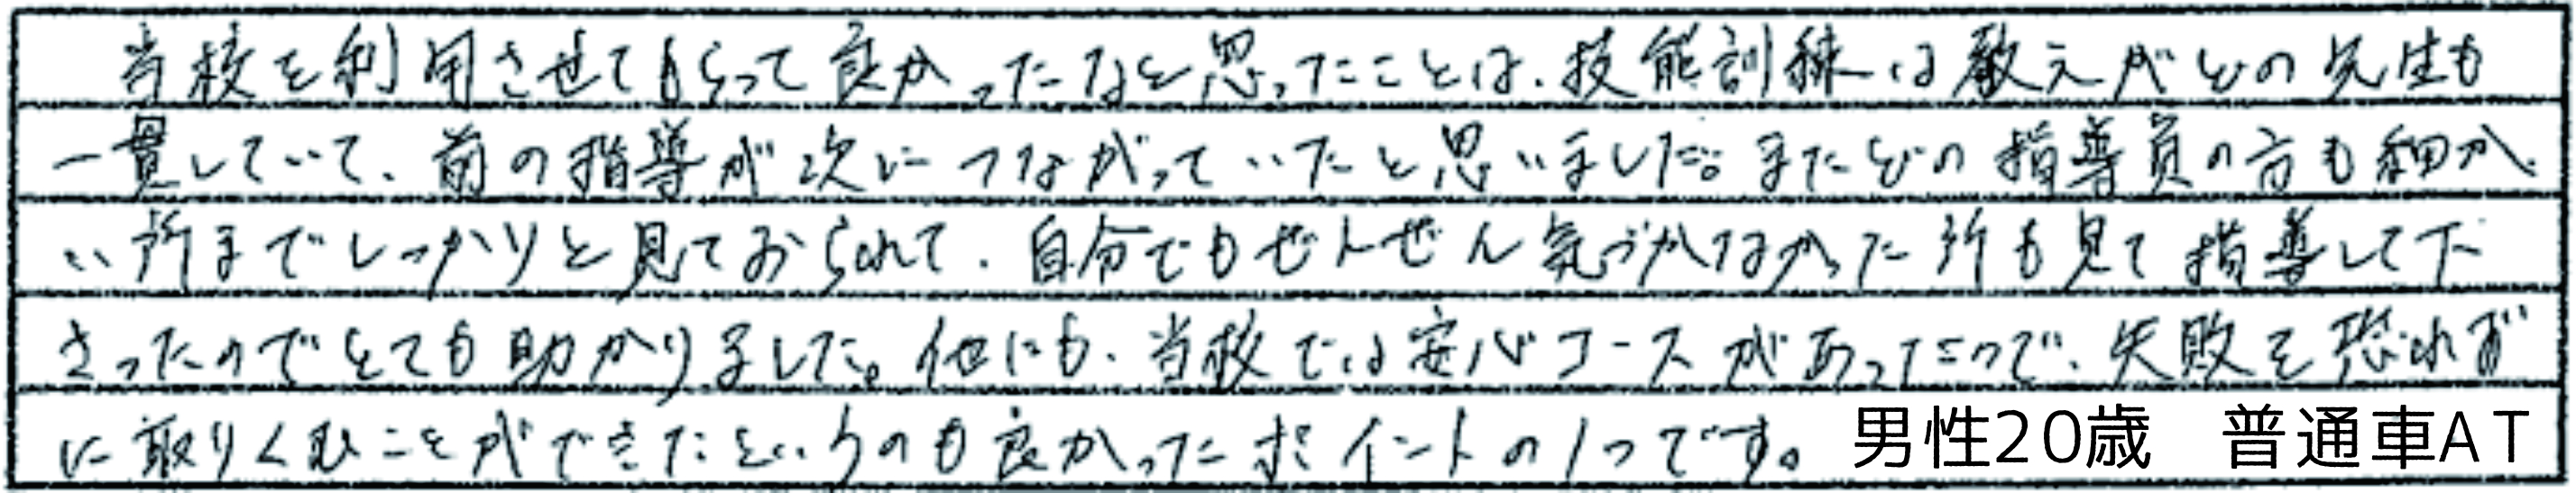 当校を利用させてもらって良かったなと思ったことは、技能訓練は教え がどの先生も
一貫していて、前の指導が次につながっていたと思いました。またどの指導員の方も細か
い所までしっかりと見ておられて、自分でもぜんぜん気づかなかった所も見て指導して下
さったのでとても助かりました。他にも、当校では安心コースがあったので、失敗を恐れず
に取りくむことができたというのも良かったポイントの1つです。 男性20歳 普通車AT